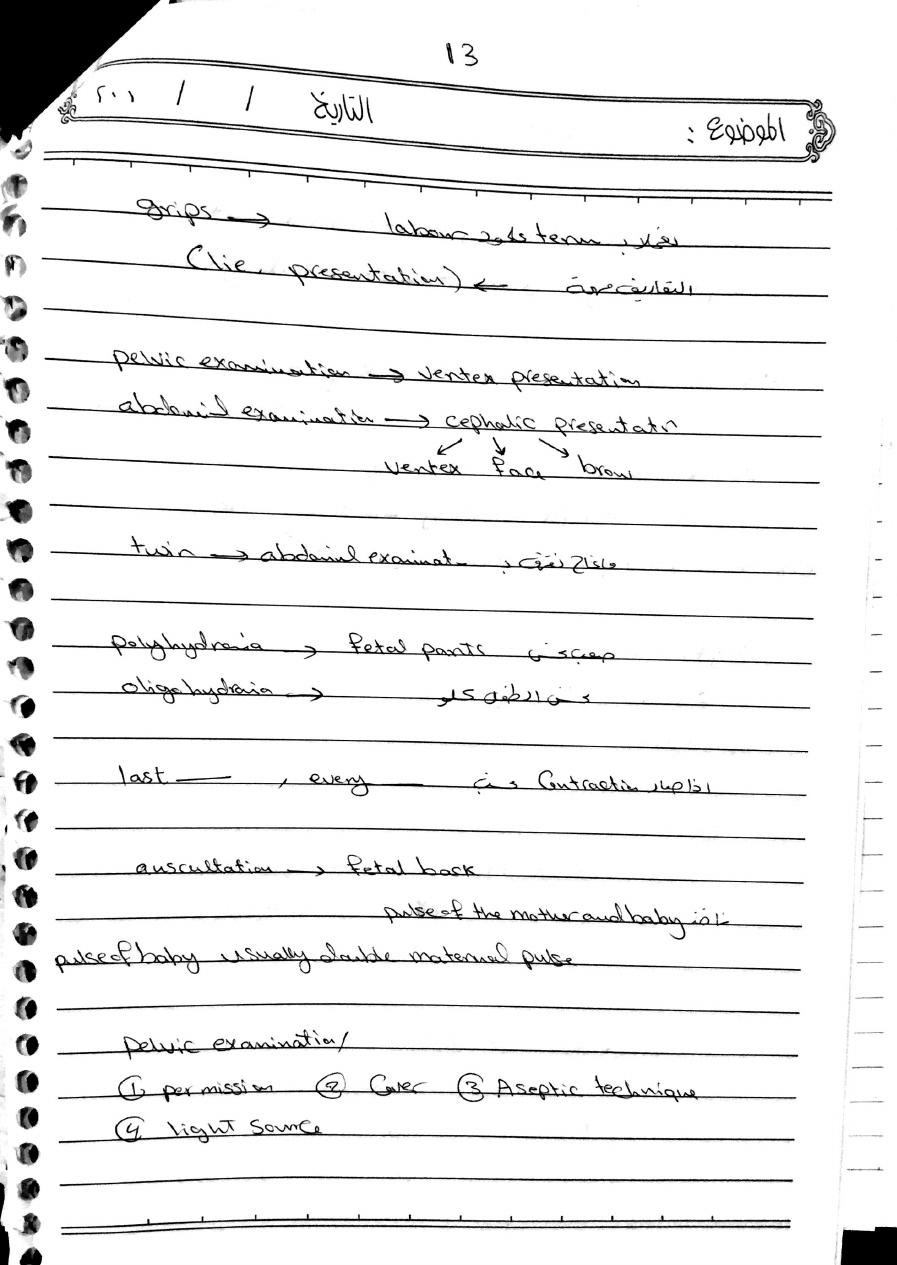 13
الموضوع : التاريخ / / ٢٠١
grips → labour term
(lie, presentation) ← التعاريف مهمة
pelvic examination → vertex presentation
abdominl examination → cephalic presentatn
↙ ↓ ↘
vertex face brow
twin → abdominl examinat
polyhydramia → fetal parts
oligohydramia →
last —— , every —— Contraction اذا صار
auscultation → fetal back
pulse of the mother and baby ناخذ
pulse of baby usually double maternal pulse
Pelvic examination/
① permission ② Cover ③ Aseptic technique
④ light Source